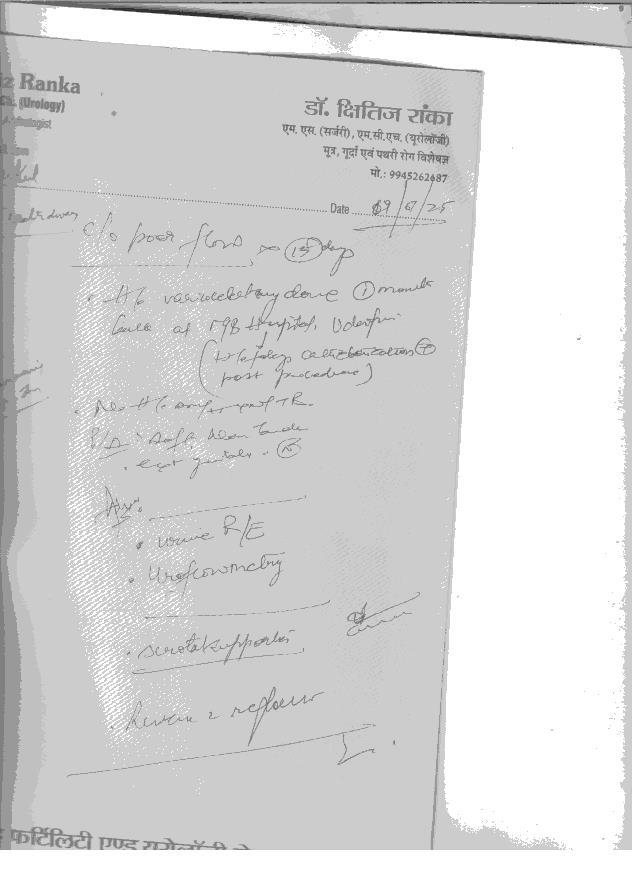 iz Ranka
Ch. (Urology)
डॉ. क्षितिज रांका
एम. एस. (सर्जरी), एम.सी.एच. (यूरोलॉजी)
मूत्र, गुर्दा एवं पथरी रोग विशेषज्ञ
मो.: 9945262687
Date 09/6/25
c/o poor flow x 15 days
• H/o varicocelectomy done 1 month
back at Hospital, Udaipur
(H/o catheterization +
post procedure)
• No H/o
P/A: Soft Non tender
• ext genitalia - N
Adv.
• urine R/E
• Uroflowmetry
• scrotal supporter
Review c reflow
फर्टिलिटी एण्ड यूरोलॉजी